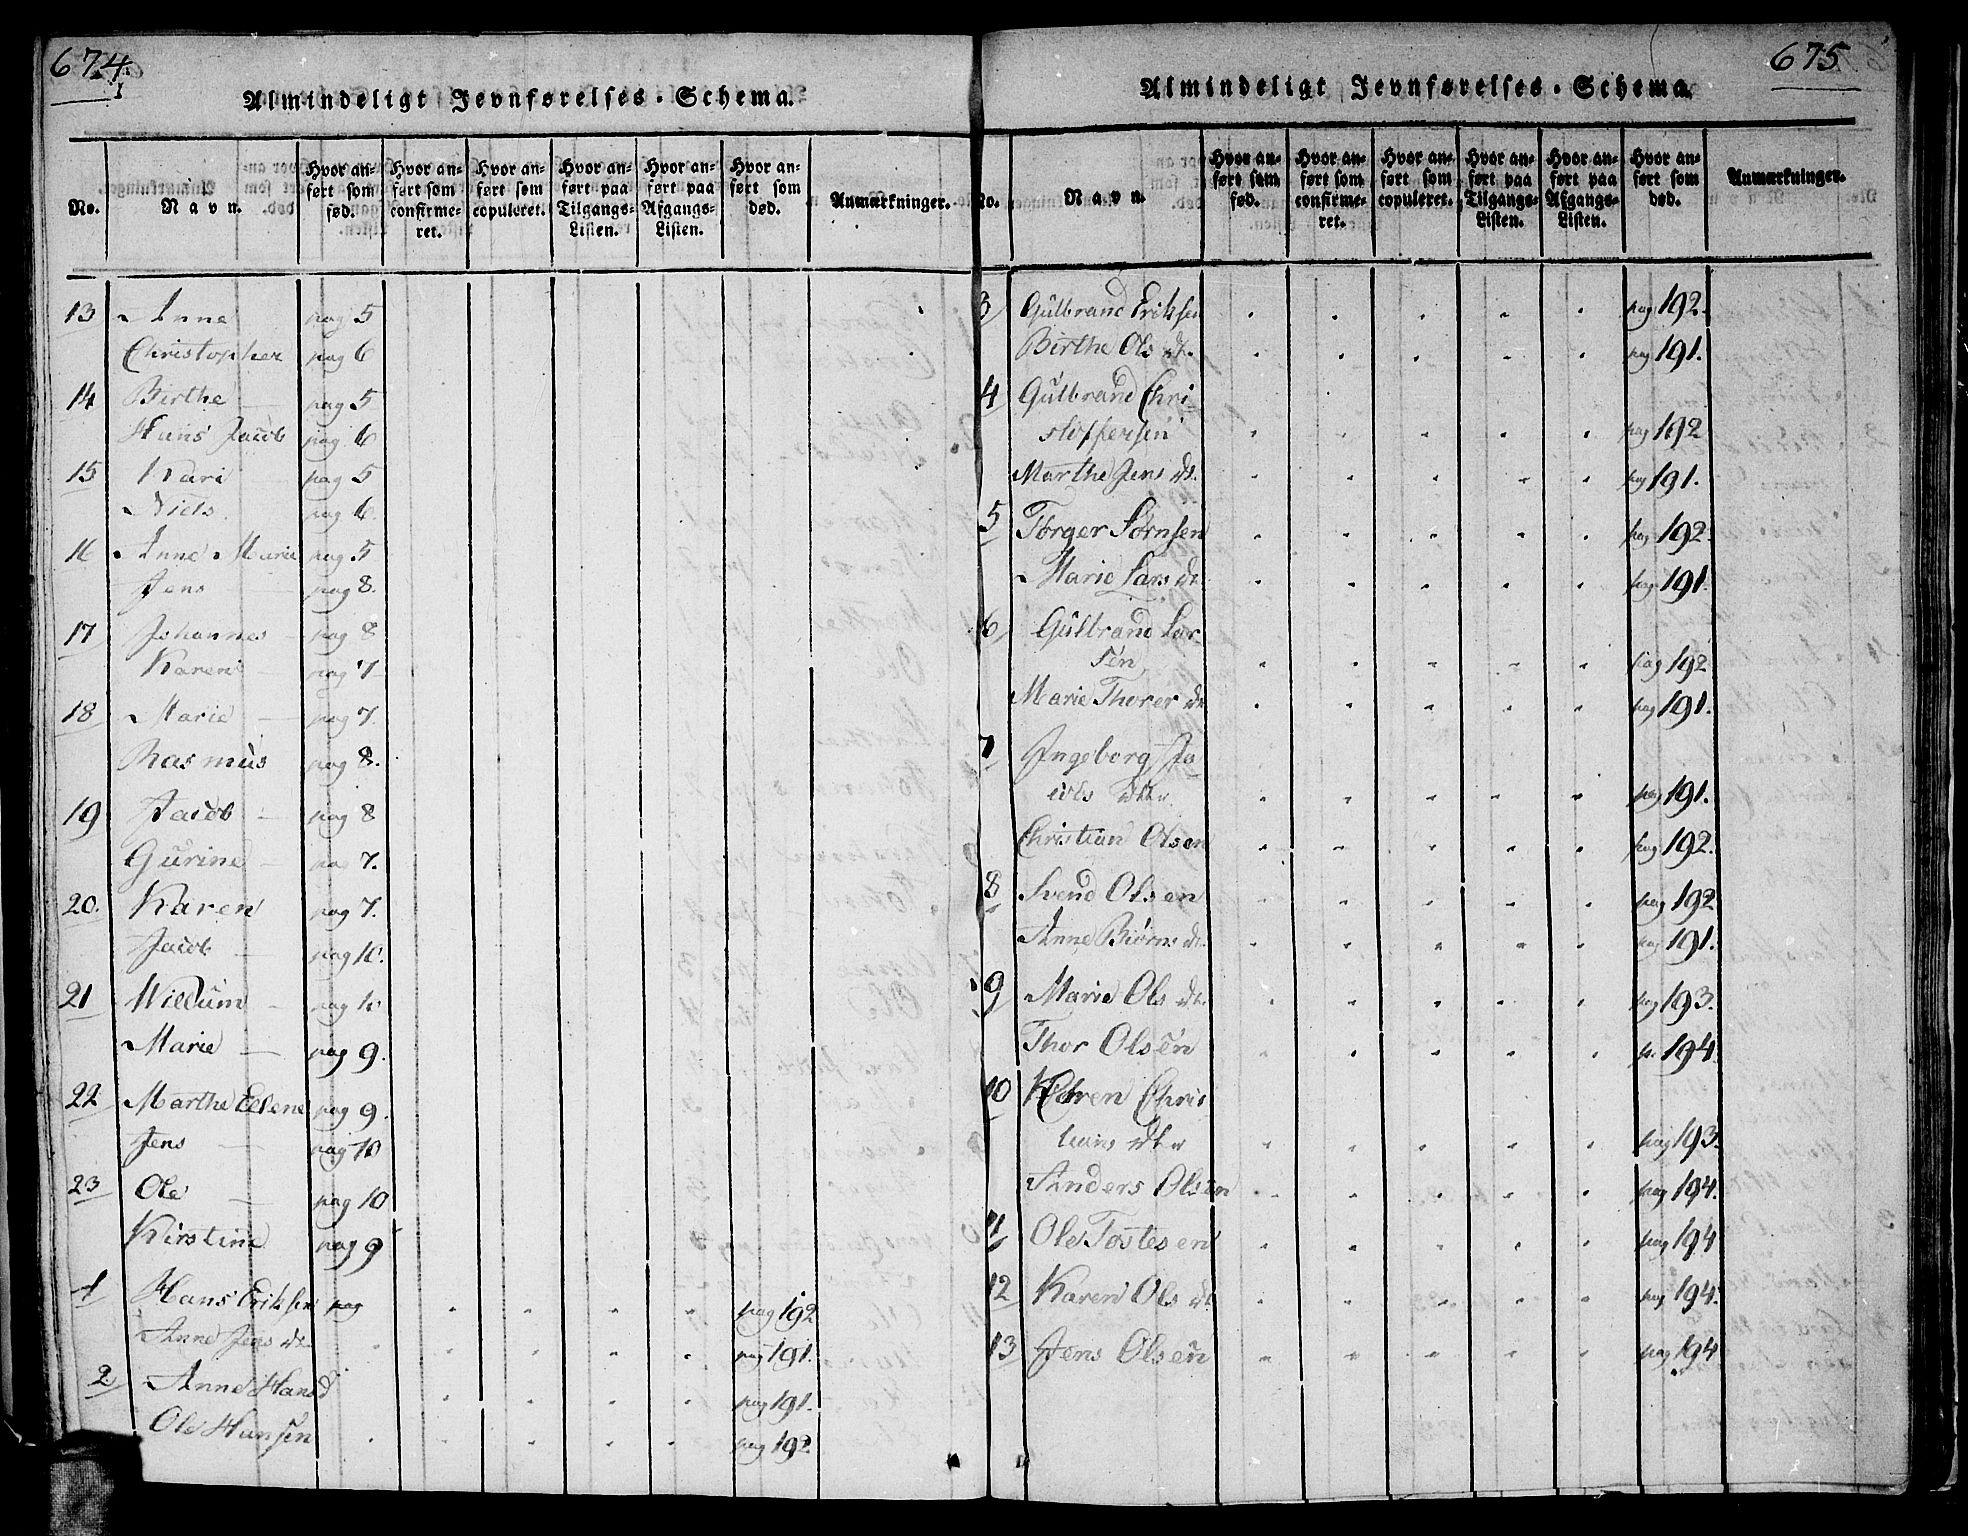 674
Almindeligt Jevnførelses-Schema.
No. Navn. Hvor anført som fød. Hvor anført som confirmeret. Hvor anført som copuleret. Hvor anført paa Tilgangs-Listen. Hvor anført paa Afgangs-Listen. Hvor anført som død. Anmærkninger.
13 Anne pag 5
Christopher pag 6
14 Birthe pag 5
Hans Jacob pag 6
15 Kari pag 5
Niels pag 6
16 Anne Marie pag 5
Jens pag 8.
17 Johannes pag 8
Karen pag 7
18 Marie pag 7.
Rasmus pag 8.
19 Jacob pag 8
Gurine pag 7.
20. Karen pag 7.
Jacob pag 10.
21 Willum pag 10
Marie pag 9.
22 Marthe Ellene pag 9.
Jens pag 10
23 Ole pag 10
Kirstine pag 9
1 Hans Eriksen pag pag 192
Anne Jens dt. pag 191.
2 Anne Hans d pag 191.
Ole Hansen pag 192
675
Almindeligt Jevnførelses-Schema.
No. Navn. Hvor anført som fød. Hvor anført som confirmeret. Hvor anført som copuleret. Hvor anført paa Tilgangs-Listen. Hvor anført paa Afgangs-Listen. Hvor anført som død. Anmærkninger.
3 Gulbrand Eriksen pag 192.
Birthe Ols dt. pag 191.
4 Gulbrand Chri
stoffersen pag 192
Marthe Jens dt. pag 191.
5 Torger Sørnsen pag 192.
Marie Lars dt. pag 191.
6 Gulbrand Lar
sen pag 192
Marie Thorer dt pag 191.
7 Ingeborg Ja
cobs dtr pag 191.
Christian Olsen pag 192.
8 Svend Olsen pag 192
Anne Biørns dt. pag 191.
9 Marie Ols dt. pag 193.
Thor Olsen p. 194
10 Karen Chris
tians dtr pag 193.
Anders Olsen pag 194.
11 Ole Tostesen pag 194
12 Karen Ols dt pag 194.
13 Jens Olsen pag 194